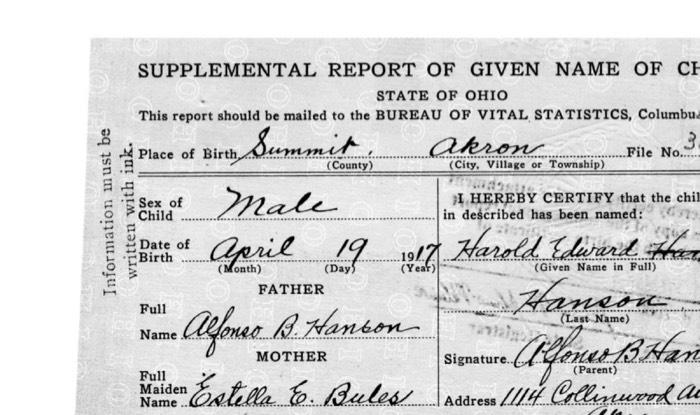 SUPPLEMENTAL REPORT OF GIVEN NAME OF CH
STATE OF OHIO
This report should be mailed to the BUREAU OF VITAL STATISTICS, Columbu
Place of Birth Summit. Akron File No. 3
(County) (City, Village or Township)
Information must be
written with ink.
Sex of
Child Male
Date of
Birth April 19 1917
(Month) (Day) (Year)
FATHER
Full
Name Alfonso B. Hanson
MOTHER
Full
Maiden
Name Estella E. Bules
I HEREBY CERTIFY that the chil
in described has been named:
Harold Edward
(Given Name in Full)
Hanson
(Last Name)
Signature Alfonso B Han
(Parent)
Address 1114 Collinwood